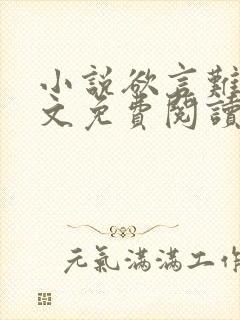 小說欲言難
文免費閱讀
元氣滿滿工作